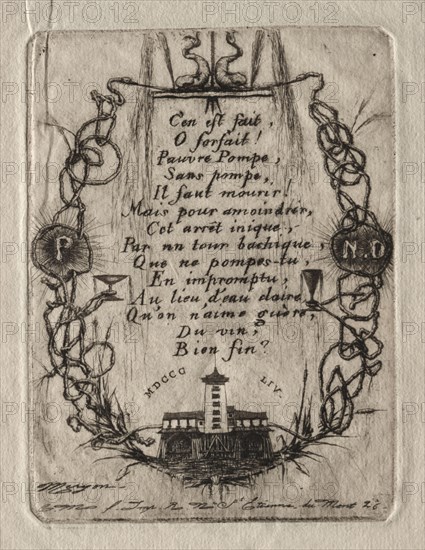 PHOTO12 PHOTO12 PHOTO12
C'en est fait,
O forfait!
Pauvre Pompe,
Sans pompe,
Il faut mourir!
Mais pour amoindrir,
Cet arrêt inique,
Par un tour bachique,
P
N.D
Que ne pompes-tu,
En impromptu,
Au lieu d'eau claire,
Qu'on n'aime guère,
Du vin,
Bien fin?
MDCCC LIV.
Meryon f
Imp. R. N. St Etienne du Mont 26.